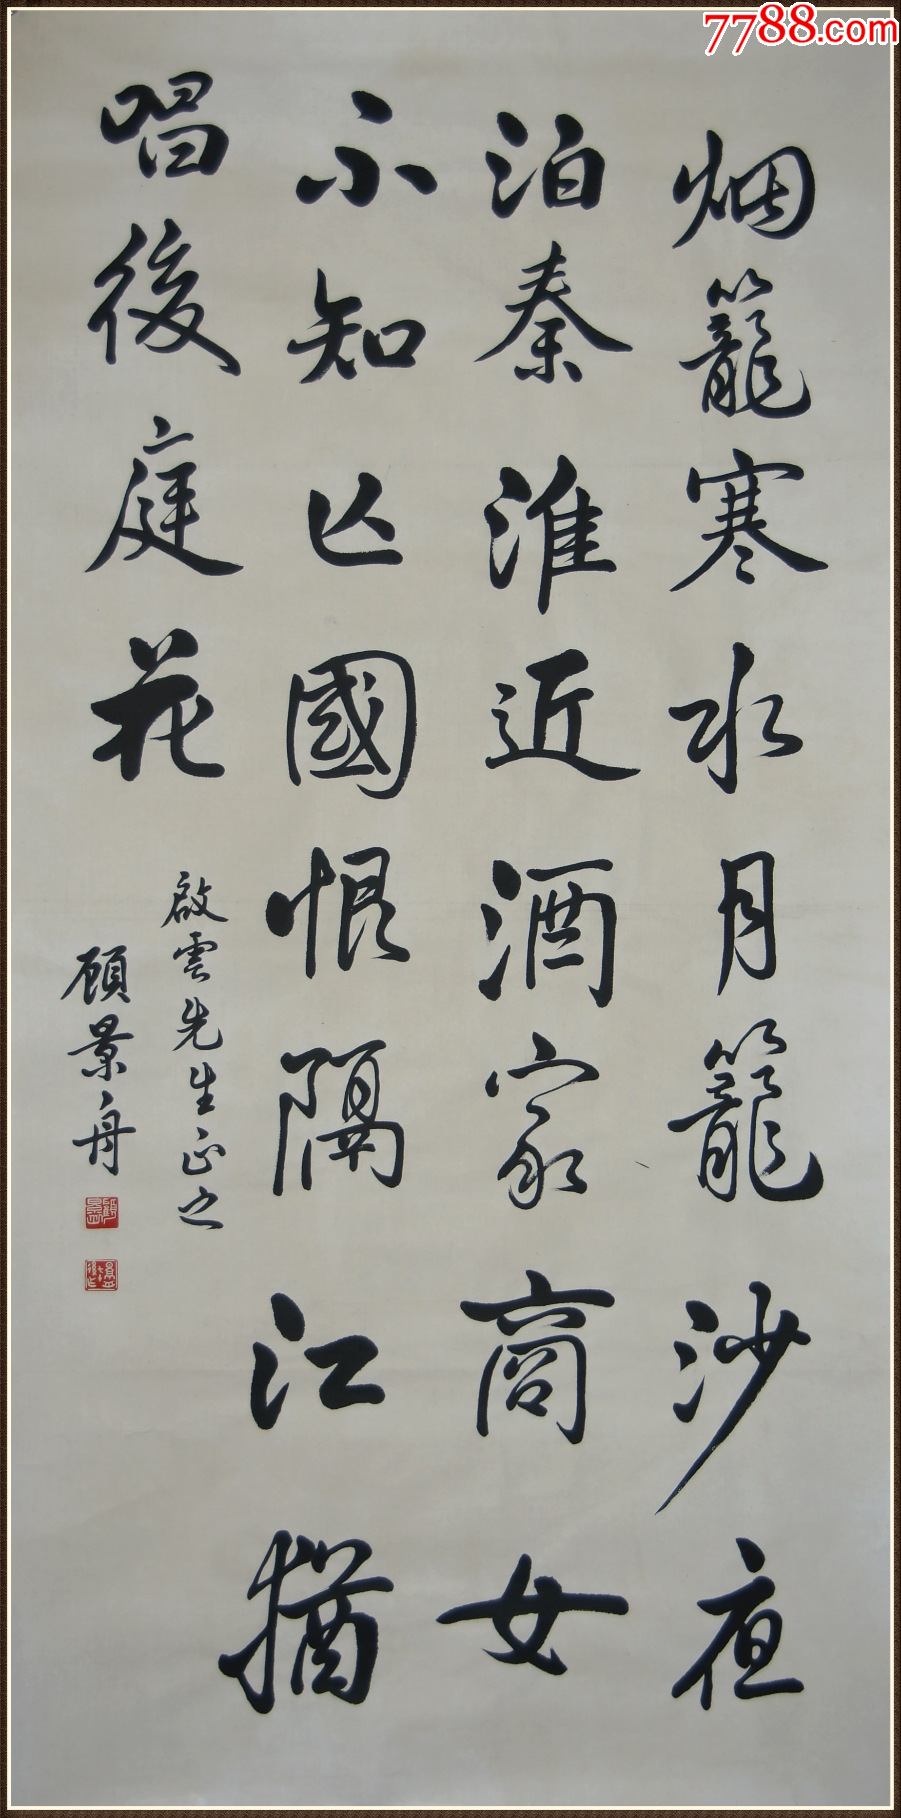 7788.com
烟籠寒水月籠沙夜
泊秦淮近酒家商女
不知亡國恨隔江猶
唱後庭花
啟雲先生正之
顾景舟